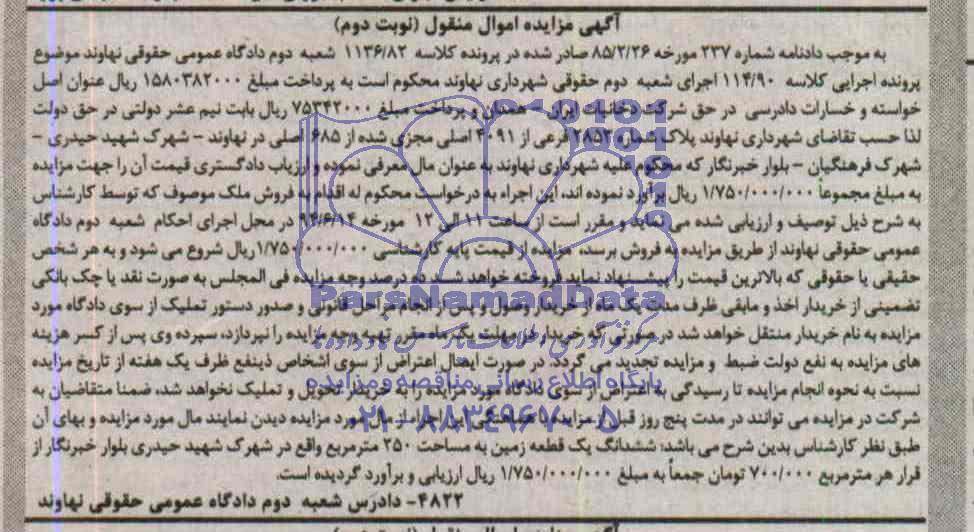 آگهی مزایده اموال منقول (نوبت دوم)
به موجب دادنامه شماره ۲۳۷ مورخه ۸۵/۲/۲۶ صادر شده در پرونده کلاسه ۱۱۳۶/۸۲ شعبه دوم دادگاه عمومی حقوقی نهاوند موضوع
پرونده اجرایی کلاسه ۱۱۴/۹۰ اجرای شعبه دوم حقوقی شهرداری نهاوند محکوم است به پرداخت مبلغ ۱۵۸۰۳۸۲۰۰۰ ریال عنوان اصل
خواسته و خسارات دادرسی در حق شرکت دخانیات ایران - همدان و پرداخت مبلغ ۷۵۳۴۲۰۰۰ ریال بابت نیم عشر دولتی در حق دولت
لذا حسب تقاضای شهرداری نهاوند پلاک شماره ۱۲۸۵۲ فرعی از ۴۰۹۱ اصلی مجزی شده از ۶۸۵ اصلی در نهاوند - شهرک شهید حیدری -
شهرک فرهنگیان - بلوار خبرنگار که محکوم علیه شهرداری نهاوند به عنوان مال معرفی نموده و ارزیاب دادگستری قیمت آن را جهت مزایده
به مبلغ مجموعاً ۱/۷۵۰/۰۰۰/۰۰۰ ریال برآورد نموده اند، این اجراء به درخواست محکوم له اقدام به فروش ملک موصوف که توسط کارشناس
به شرح ذیل توصیف و ارزیابی شده می نماید و مقرر است از ساعت ۱۱ الی ۱۲ مورخه ۹۴/۶/۱۴ در محل اجرای احکام شعبه دوم دادگاه
عمومی حقوقی نهاوند از طریق مزایده به فروش برسد، مزایده از قیمت پایه کارشناسی ۱/۷۵۰/۰۰۰/۰۰۰ ریال شروع می شود و به هر شخص
حقیقی یا حقوقی که بالاترین قیمت را پیشنهاد نماید فروخته خواهد شد، ده درصد وجه مزایده فی المجلس به صورت نقد یا چک بانکی
تضمینی از خریدار اخذ و مابقی ظرف مدت یک ماه از خریدار وصول و پس از انجام مراحل قانونی و صدور دستور تملیک از سوی دادگاه مورد
مزایده به نام خریدار منتقل خواهد شد در صورتی که خریدار ظرف مهلت یک ماه مقرر تهیه وجه مزایده را نپردازد، سپرده وی پس از کسر هزینه
های مزایده به نفع دولت ضبط و مزایده تجدید می گردد در صورت ایصال اعتراض از سوی اشخاص ذینفع ظرف یک هفته از تاریخ مزایده
نسبت به نحوه انجام مزایده تا رسیدگی به اعتراض از سوی دادگاه مورد مزایده را به خریدار تحویل و تملیک نخواهد شد، ضمنا متقاضیان به
شرکت در مزایده می توانند در مدت پنج روز قبل از مزایده با هماهنگی این اجرا از مال مورد مزایده دیدن نمایند مال مورد مزایده و بهای آن
طبق نظر کارشناس بدین شرح می باشد: ششدانگ یک قطعه زمین به مساحت ۲۵۰ مترمربع واقع در شهرک شهید حیدری بلوار خبرنگار از
قرار هر مترمربع ۷۰۰/۰۰۰ تومان جمعاً به مبلغ ۱/۷۵۰/۰۰۰/۰۰۰ ریال ارزیابی و برآورد گردیده است.
۴۸۲۲- دادرس شعبه دوم دادگاه عمومی حقوقی نهاوند
ParsNamadData
پایگاه اطلاع رسانی مناقصه و مزایده
۰۲۱-۸۸۳۴۹۶۷۰-۵